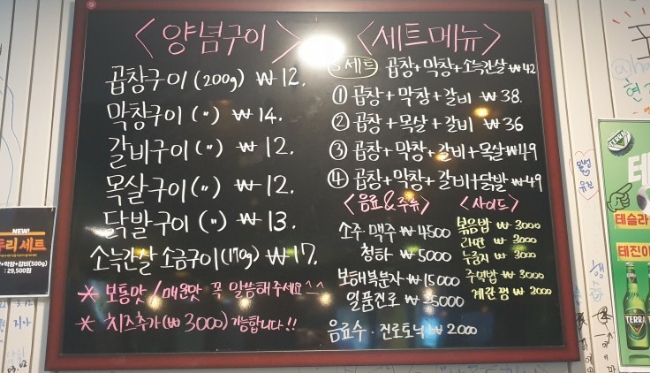 <양념구이>
곱창구이 (200g) ₩12.
막창구이 (〃) ₩14.
갈비구이 (〃) ₩12.
목살구이 (〃) ₩12.
닭발구이 (〃) ₩13.
소늑간살 소금구이 (170g) ₩17.
* 보통맛/매운맛 꼭 말씀해주세요^^
* 치즈추가(₩3000) 가능합니다!!
<세트메뉴>
세트 곱창+막창+소늑간살 ₩42
① 곱창+막창+갈비 ₩38.
② 곱창+목살+갈비 ₩36
③ 곱창+막창+갈비+목살 ₩49
④ 곱창+막창+갈비+닭발 ₩49
<음료&주류>
소주·맥주 ₩4500
청하 ₩5000
보해복분자 ₩15000
일품진로
음료수·진로토닉 ₩2000
<사이드>
볶음밥 ₩3000
라면 ₩3000
누룽지 ₩3000
주먹밥 ₩3000
계란찜 ₩2000
NEW!
두리세트
+막창+갈비(500g)
: 29,500원
테슬라
테진아
TERRA